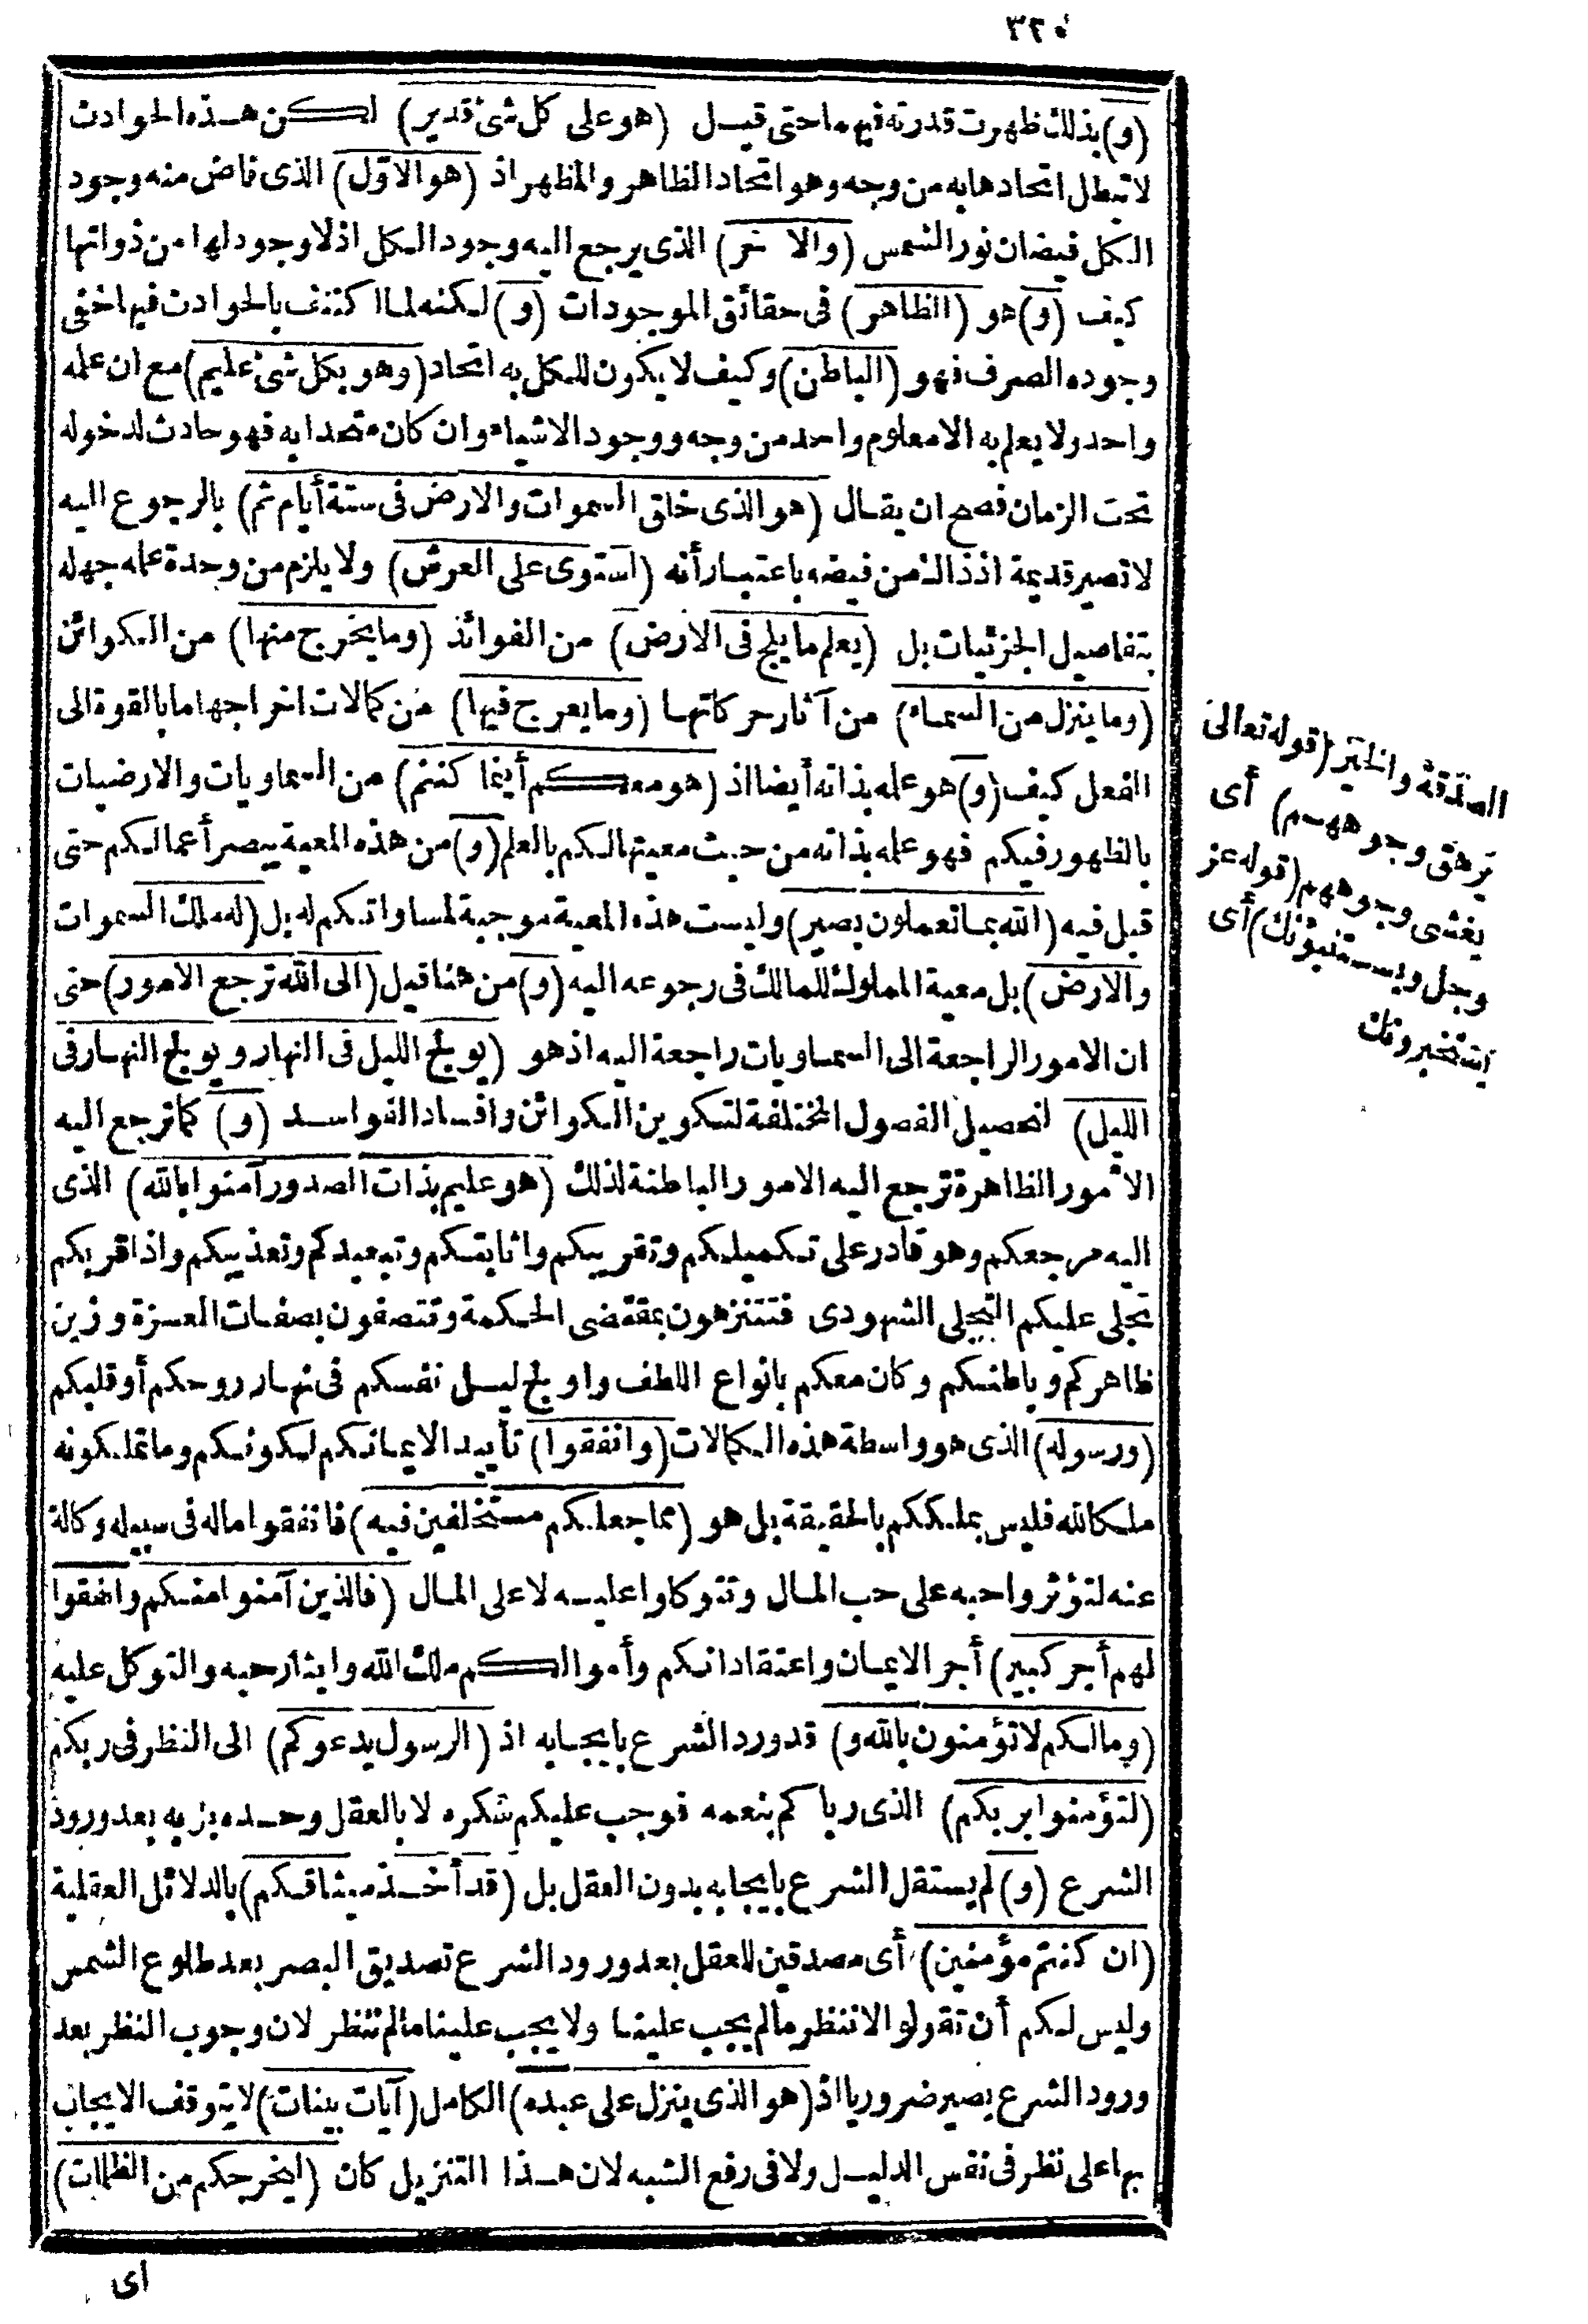 ٣٢٠
(و) بذلك ظهرت قدرته فيهما حتى قيل (هو على كل شئ قدير) لكن هذه الحوادث
لا تبطل اتحادها به من وجه وهو اتحاد الظاهر والمظهر اذ (هو الاول) الذى فاض منه وجود
الكل فيضان نور الشمس (والآخر) الذى يرجع اليه وجود الكل اذ لا وجود لها من ذواتها
كيف (و) هو (الظاهر) فى حقائق الموجودات (و) لكنه لما اكتنف بالحوادث فيها اختفى
وجوده الصرف فهو (الباطن) وكيف لا يكون للكل به اتحاد (وهو بكل شئ عليم) مع ان علمه
واحد ولا يعلم به الا معلوم واحد من وجه ووجود الاشياء وان كان متحدا به فهو حادث لدخوله
تحت الزمان فصح ان يقال (هو الذى خلق السموات والارض فى ستة أيام ثم) بالرجوع اليه
لا تصير قديمة اذ ذاك من فيضه باعتبار أنه (استوى على العرش) ولا يلزم من وحدة علمه جهله
بتفاصيل الجزئيات بل (يعلم ما يلج فى الارض) من الفوائد (وما يخرج منها) من الكوائن
(وما ينزل من السماء) من آثار حركاتها (وما يعرج فيها) من كمالات اخراجها ما بالقوة الى
الفعل كيف (و) هو علمه بذاته أيضا اذ (هو معكم أينما كنتم) من السماويات والارضيات
بالظهور فيكم فهو علمه بذاته من حيث معيتها لكم بالعلم (و) من هذه المعية يبصر أعمالكم حتى
قيل فيه (الله بما تعملون بصير) وليست هذه المعية موجبة لمساواتكم له بل (له ملك السموات
والارض) بل معية المملوك للمالك فى رجوعه اليه (و) من هنا قيل (الى الله ترجع الامور) حتى
ان الامور الراجعة الى السماويات راجعة اليه اذ هو (يولج الليل فى النهار ويولج النهار فى
الليل) لتحصيل الفصول المختلفة لتكوين الكوائن وافساد الفواسد (و) كما ترجع اليه
الامور الظاهرة ترجع اليه الامور الباطنة لذلك (هو عليم بذات الصدور آمنوا بالله) الذى
اليه مرجعكم وهو قادر على تكميلكم وتقريبكم واثابتكم وتبعيدكم وتعذيبكم واذا قربكم
تجلى عليكم التجلى الشهودى فتتنزهون بمقتضى الحكمة وتتصفون بصفات العزة وزين
ظاهركم وباطنكم وكان معكم بانواع اللطف واولج ليل نفسكم فى نهار روحكم أو قلبكم
(ورسوله) الذى هو واسطة هذه الكمالات (وانفقوا) تأييدا لايمانكم لكونكم وما تملكونه
ملكا لله فليس بملككم بالحقيقة بل هو (مما جعلكم مستخلفين فيه) فانفقوا ماله فى سبيله وكالة
عنه لتؤثروا حبه على حب المال وتتوكلوا عليه لا على المال (فالذين آمنوا منكم وانفقوا
لهم أجر كبير) أجر الايمان واعتقاد انكم وأموالكم ملك الله وايثار حبه والتوكل عليه
(وما لكم لا تؤمنون بالله و) قد ورد الشرع بايجابه اذ (الرسول يدعوكم) الى النظر فى ربكم
(لتؤمنوا بربكم) الذى رباكم بنعمه فوجب عليكم شكره لا بالعقل وحده بل به بعد ورود
الشرع (و) لم يستقل الشرع بايجابه بدون العقل بل (قد أخذ ميثاقكم) بالدلائل العقلية
(ان كنتم مؤمنين) أى مصدقين للعقل بعد ورود الشرع تصديق البصر بعد طلوع الشمس
وليس لكم أن تقولوا لا ننظر ما لم يجب علينا ولا يجب علينا ما لم ننظر لان وجوب النظر بعد
ورود الشرع يصير ضروريا اذ (هو الذى ينزل على عبده) الكامل (آيات بينات) لا يتوقف الايجاب
بها على نظر فى نفس الدليل ولا فى رفع الشبه لان هذا التنزيل كان (ليخرجكم من الظلمات)
اى
الصدقة والخير (قوله تعالى
يرهق وجوههم) أى
يغشى وجوههم (قوله عز
وجل ويستنبؤنك) أى
يستخبرونك